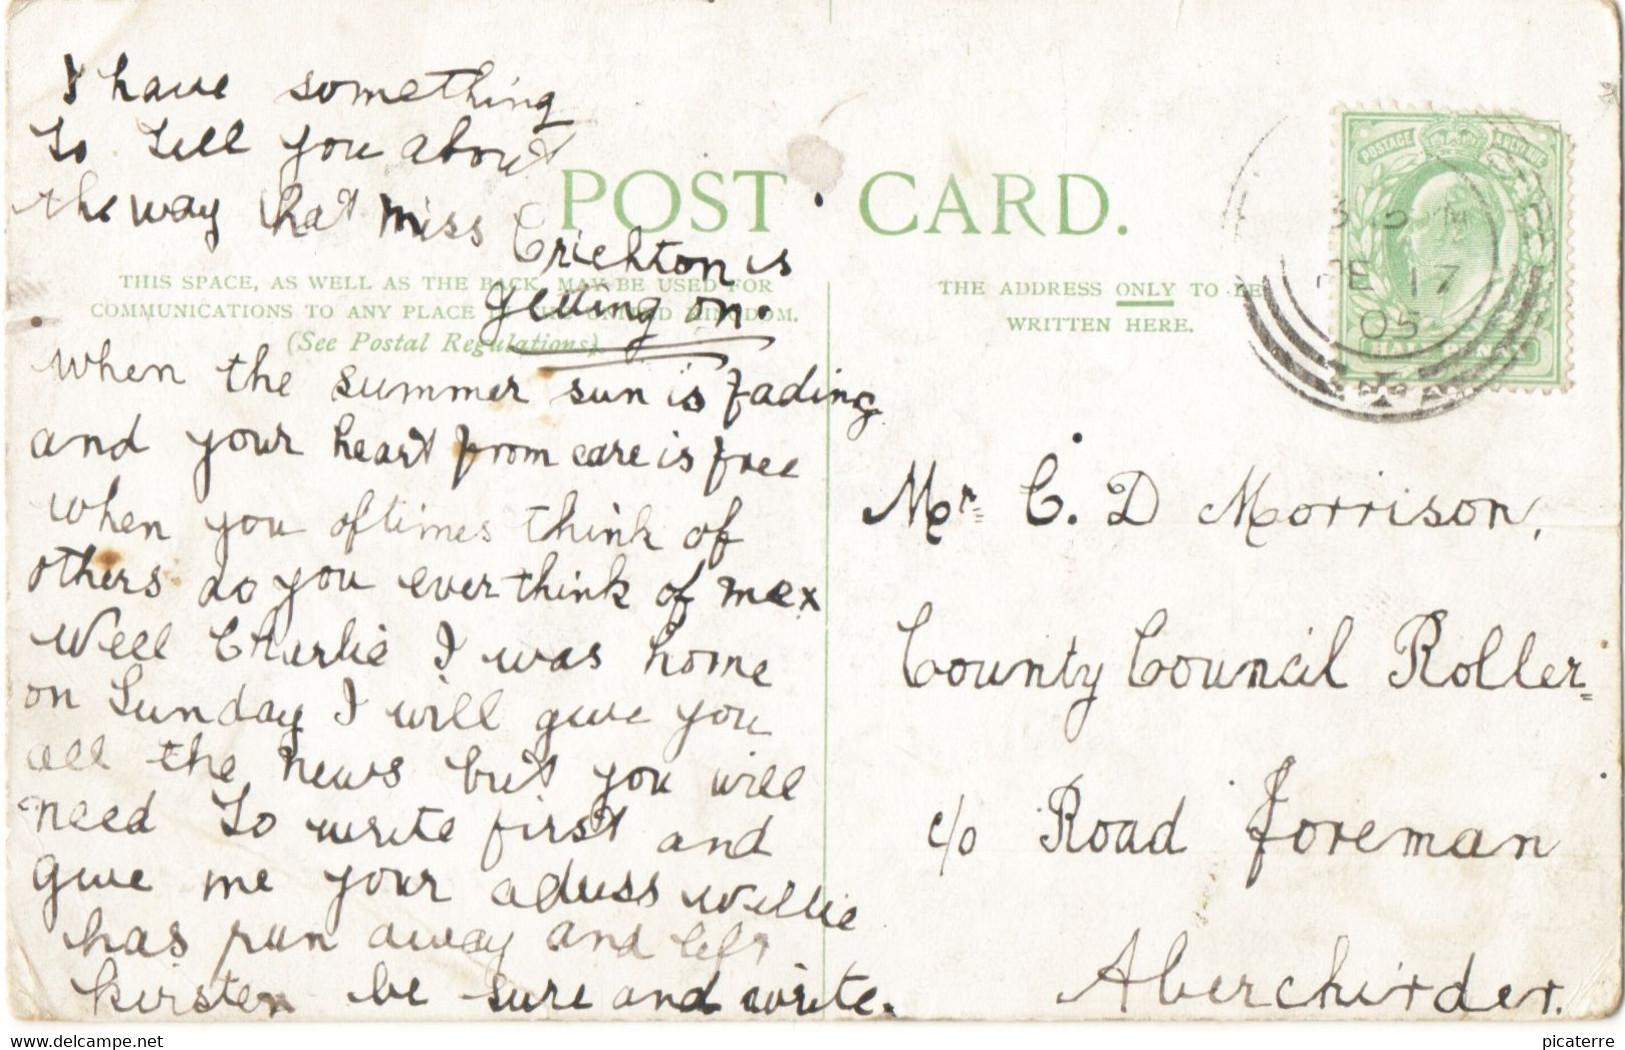 I have something
To Tell you about
the way that Miss
Crichton is
getting on.
POST CARD.
THIS SPACE, AS WELL AS THE BACK, MAY BE USED FOR
COMMUNICATIONS TO ANY PLACE KINGDOM.
(See Postal Regulations).
when the summer sun is fading
and your heart from care is free
when you oftimes think of
others do you ever think of me x
Well Charlie I was home
on Sunday I will give you
all the news but you will
need To write first and
give me your adress Willie
has run away and left
kirsten be sure and write.
THE ADDRESS ONLY TO BE
WRITTEN HERE.
POSTAGE REVENUE
FE 17
05
HALF PENNY
Mr. C. D Morrison,
County Council Roller
c/o Road Foreman
Aberchirder.
www.delcampe.net
picaterre